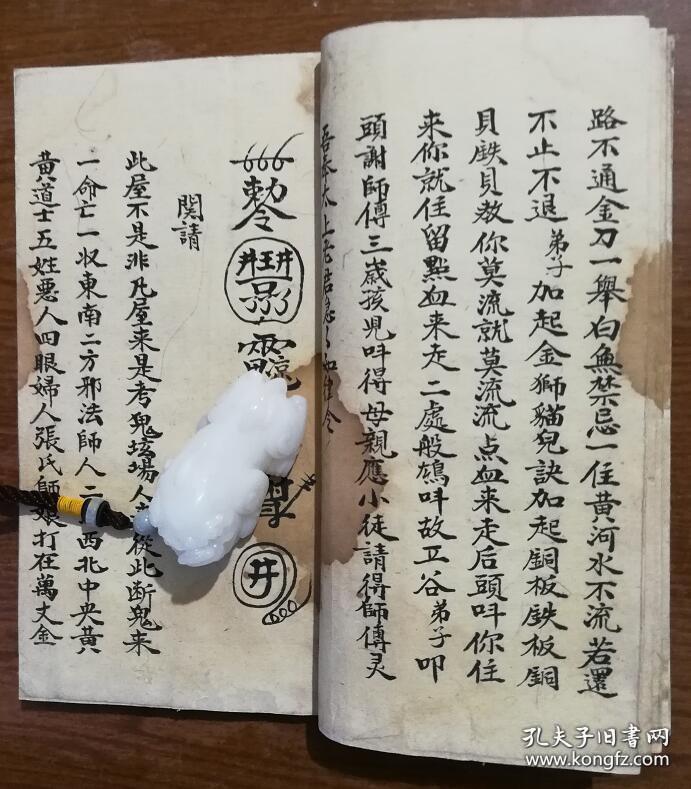 路不通金刀一舉白無禁忌一住黄河水不流若還
不止不退弟子加起金獅貓兒訣加起銅板鉄板銅
貝鉄貝教你莫流就莫流流点血来走后頭呌你住
来你就住留點血来走二處般鴆呌故五谷弟子叩
頭謝師傅三歳孩児呌得母親應小徒請得師傅灵
吾奉太上老君急令
勅令
井
関請
此屋不是非凡屋来是考鬼垓場人從此断鬼来
一命亡一収東南二方邪法師人二西北中央黄
黄道士五姓悪人四眼婦人張氏師娘打在萬丈金
孔夫子旧书网
www.kongfz.com